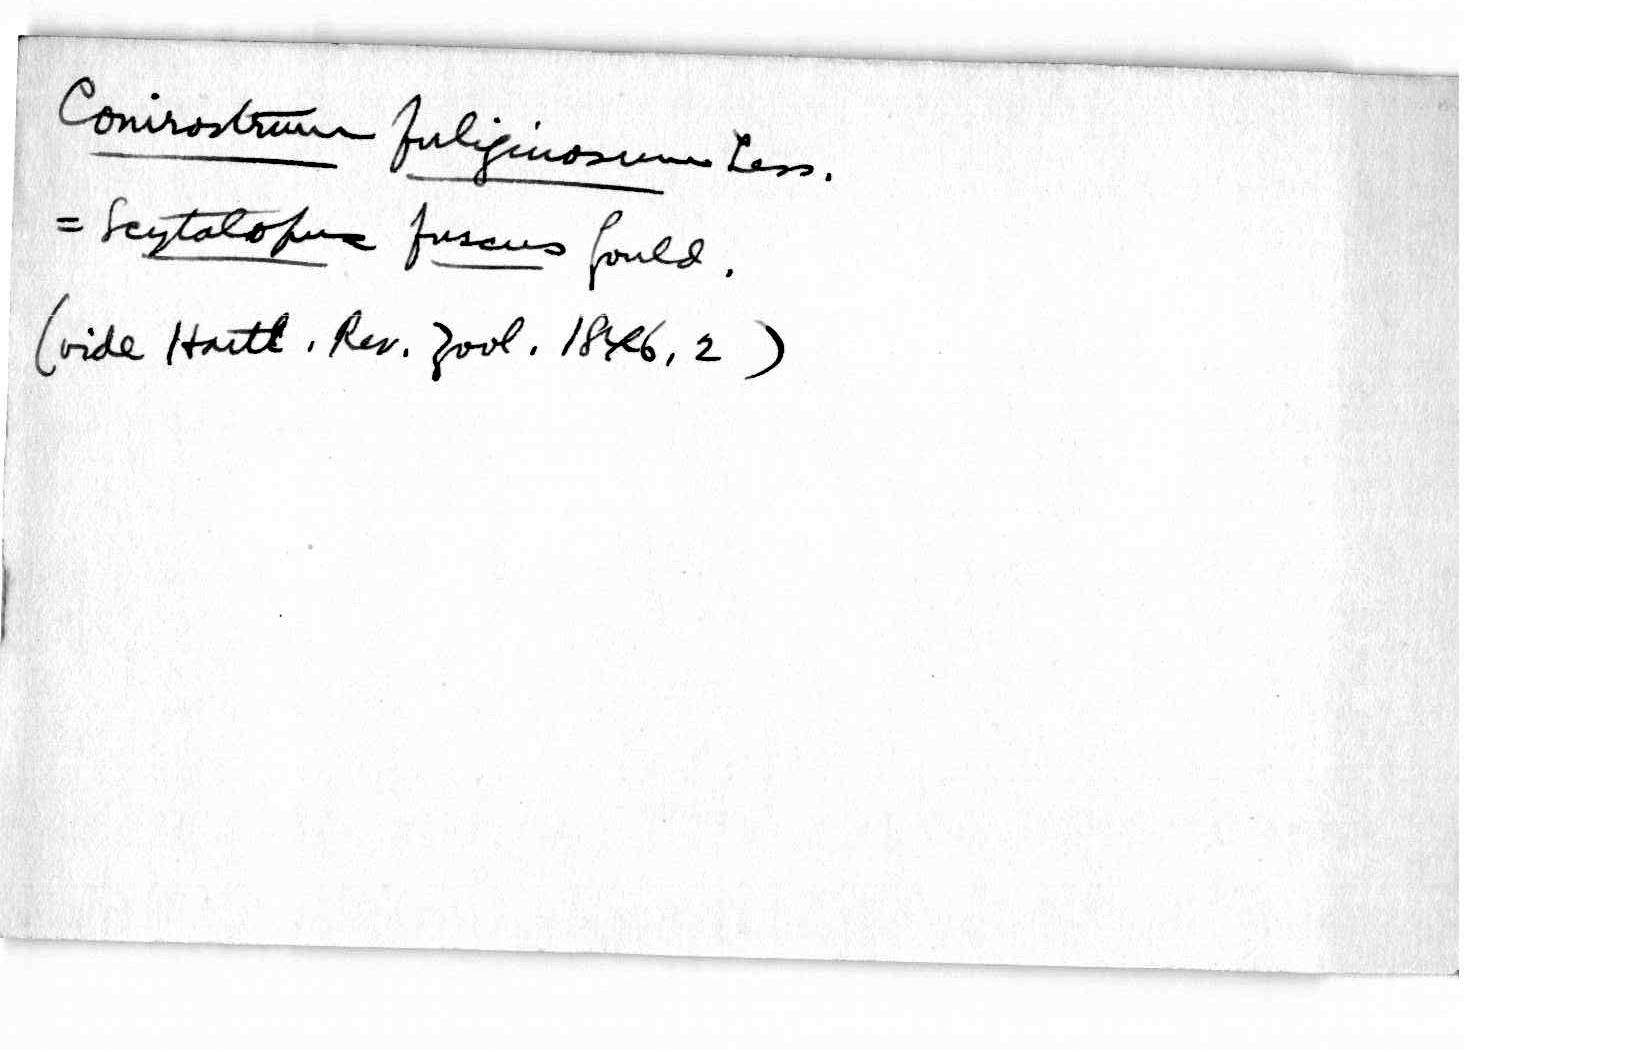 Conirostrum fuliginosum Less.
= Scytalopus fuscus Gould.
(vide Hartl. Rev. Zool. 1846, 2)